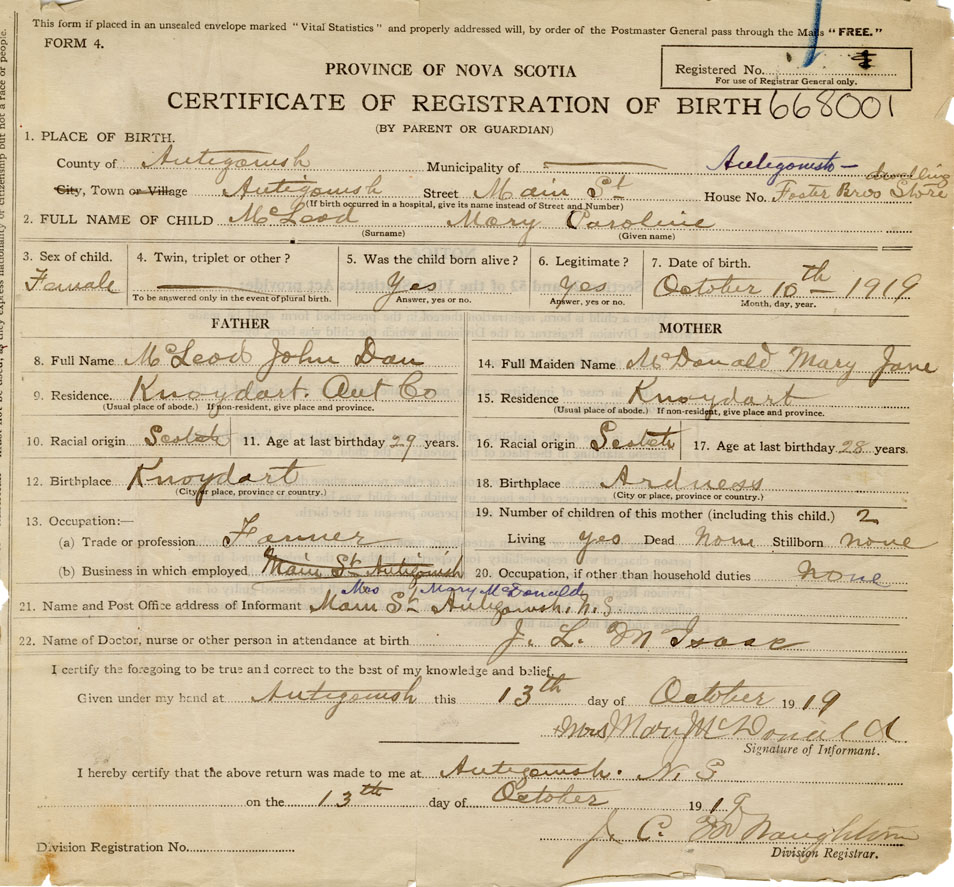 This form if placed in an unsealed envelope marked "Vital Statistics" and properly addressed will, by order of the Postmaster General pass through the Mails "FREE."
FORM 4.
Registered No.
For use of Registrar General only.
PROVINCE OF NOVA SCOTIA
CERTIFICATE OF REGISTRATION OF BIRTH 668001
(BY PARENT OR GUARDIAN)
1. PLACE OF BIRTH.
County of Antigonish Municipality of — Antigonish – dwelling
City, Town or Village Antigonish Street Main St House No. Foster Bros Store
(If birth occurred in a hospital, give its name instead of Street and Number)
2. FULL NAME OF CHILD McLeod Mary Caroline
(Surname) (Given name)
3. Sex of child. 4. Twin, triplet or other? 5. Was the child born alive? 6. Legitimate? 7. Date of birth.
Female — Yes Yes October 10th – 1919
To be answered only in the event of plural birth. Answer, yes or no. Answer, yes or no. Month, day, year.
FATHER MOTHER
8. Full Name McLeod John Dan 14. Full Maiden Name McDonald Mary Jane
9. Residence Knoydart. Ant Co 15. Residence Knoydart
(Usual place of abode.) If non-resident, give place and province. (Usual place of abode.) If non-resident, give place and province.
10. Racial origin Scotch 11. Age at last birthday 29 years. 16. Racial origin Scotch 17. Age at last birthday 28 years.
12. Birthplace Knoydart 18. Birthplace Ardness
(City or place, province or country.) (City or place, province or country.)
13. Occupation:— 19. Number of children of this mother (including this child.) 2
(a) Trade or profession Farmer Living yes Dead None Stillborn none
(b) Business in which employed Main St Antigonish 20. Occupation, if other than household duties none
Mrs Mary McDonald
21. Name and Post Office address of Informant Main St Antigonish. N. S
22. Name of Doctor, nurse or other person in attendance at birth J. L. McIsaac
I certify the foregoing to be true and correct to the best of my knowledge and belief.
Given under my hand at Antigonish this 13th day of October 1919
Mrs Mary McDonald
Signature of Informant.
I hereby certify that the above return was made to me at Antigonish. N. S
on the 13th day of October 1919
J. C. McNaughton
Division Registration No. Division Registrar.